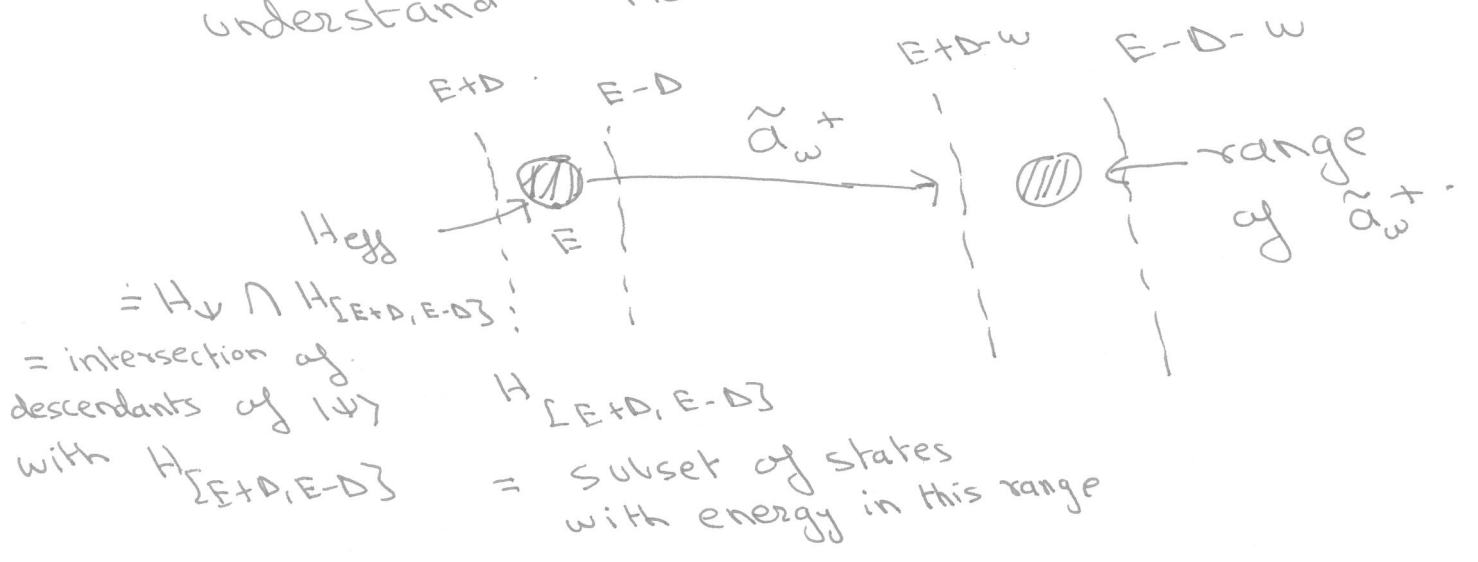 understand
E+D E-D E+D-ω E-D-ω
ã_ω^+
range
of ã_ω^+.
H_eff
E
≐ H_ψ ∩ H_[E+D, E-D]
= intersection of
descendants of |ψ>
with H_[E+D, E-D]
H_[E+D, E-D]
= subset of states
with energy in this range